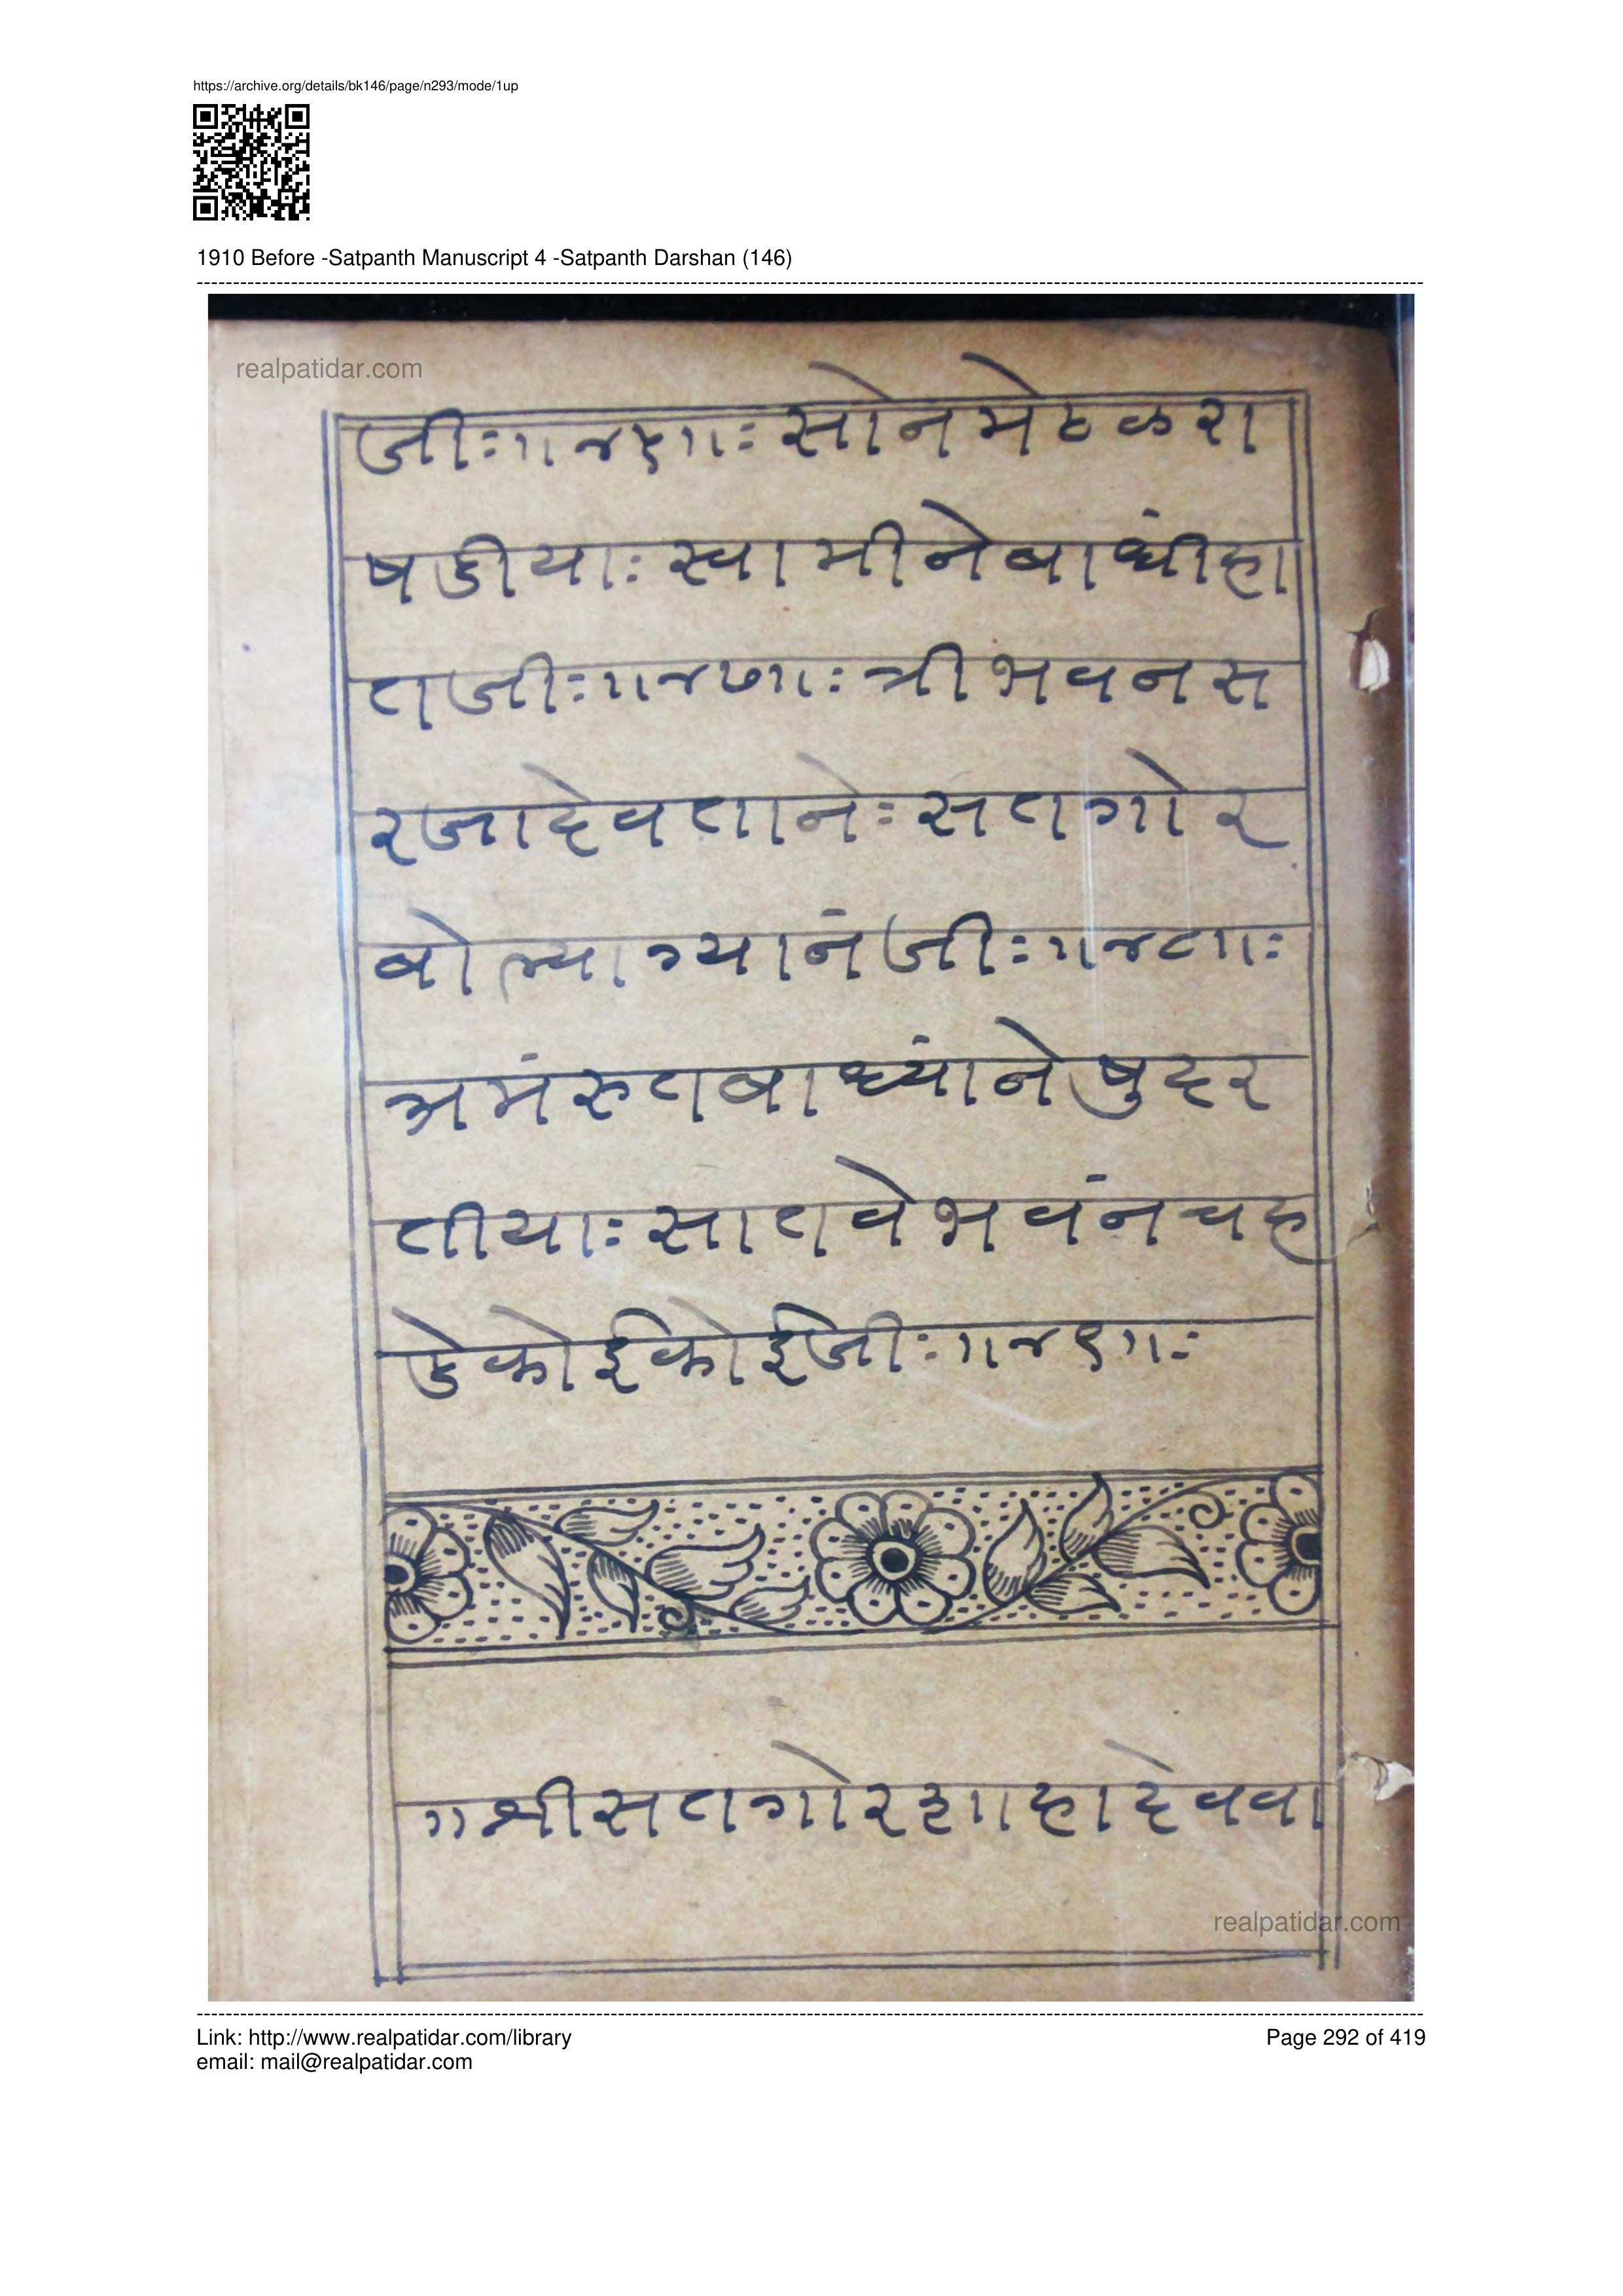 https://archive.org/details/bk146/page/n293/mode/1up
1910 Before -Satpanth Manuscript 4 -Satpanth Darshan (146)
realpatidar.com
जीः॥४६॥ः सोनमेहकरा
षडीयाः स्वामीनेबाधींहा
तजीः॥४७॥ः त्रीभवनस
रजादेवतानेः सतगोर
बोल्याग्यानंजीः॥४८॥ः
अमंरुतबाध्यांनेषुदर
तीयाः सातवेभवंनचह
डेकोईकोईजीः॥४९॥ः
॥श्रीसतगोरशाहादेववा
realpatidar.com
Link: http://www.realpatidar.com/library
Page 292 of 419
email: mail@realpatidar.com